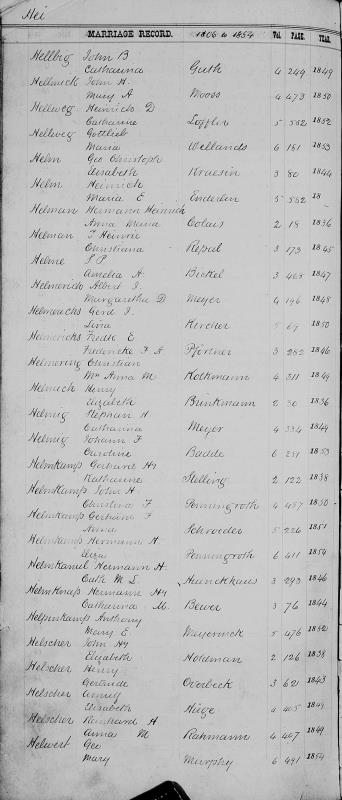 Hel
MARRIAGE RECORD. 1806 to 1854 Vol. PAGE. YEAR.
Hellbig John B
Catharina Guth 4 249 1849
Hellmick John H.
Mary A Mooss 4 473 1850
Hellweg Heinrich D
Catharine Loffler 5 552 1852
Hellweg Gottlieb
Maria Wellands 6 181 1853
Helm Geo Christoph
Elisabeth Kraesin 3 80 1844
Helm Heinrich
Maria E Enderlin 5 552 18
Helman Hermann Heinrich
Anna Maria Colais 2 18 1836
Helman F Heinrie
Christiana Repal 3 173 1845
Helme S P
Amelia A. Bickel 3 465 1847
Helmerich Albert I.
Margaretha D Meyer 4 196 1848
Helmerichs Gerd I.
Lina Kircher 5 69 1850
Helmericks Fredk E
Fredericke F A Pfortner 3 282 1846
Helmering Christian
Mrs Anna M Kolkmann 4 311 1849
Helmich Henry
Elizabeth Brinkmann 2 30 1836
Helmig Stephan H
Catharina Meyer 4 334 1849
Helmig Johann F
Caroline Badde 6 251 1853
Helmkamp Gerhard Hy
Katharine Stelling 2 122 1838
Helmkamp John H
Christina F Penningroth 4 457 1850
Helmkamp Gerhard F
Anna Schroeder 5 226 1851
Helmkamp Hermann H.
Eliza Penningroth 6 411 1854
Hermann H.
Cath M L Huinckhaus 3 293 1846
Hermann Hy
Catharina M. Bewer 3 76 1844
Helpenkamp Anthony
Mary E Meyerinck 5 476 1852
Helscher John Hy
Elizabeth Holdman 2 126 1838
Helscher Henry
Gertrude Overbeck 3 621 1843
Helscher
Elisabeth Hiege 4 405 1849
Helscher Reinhard H
Anna M Rahmann 4 407 1849
Helwert Geo
Mary Murphy 6 491 1854